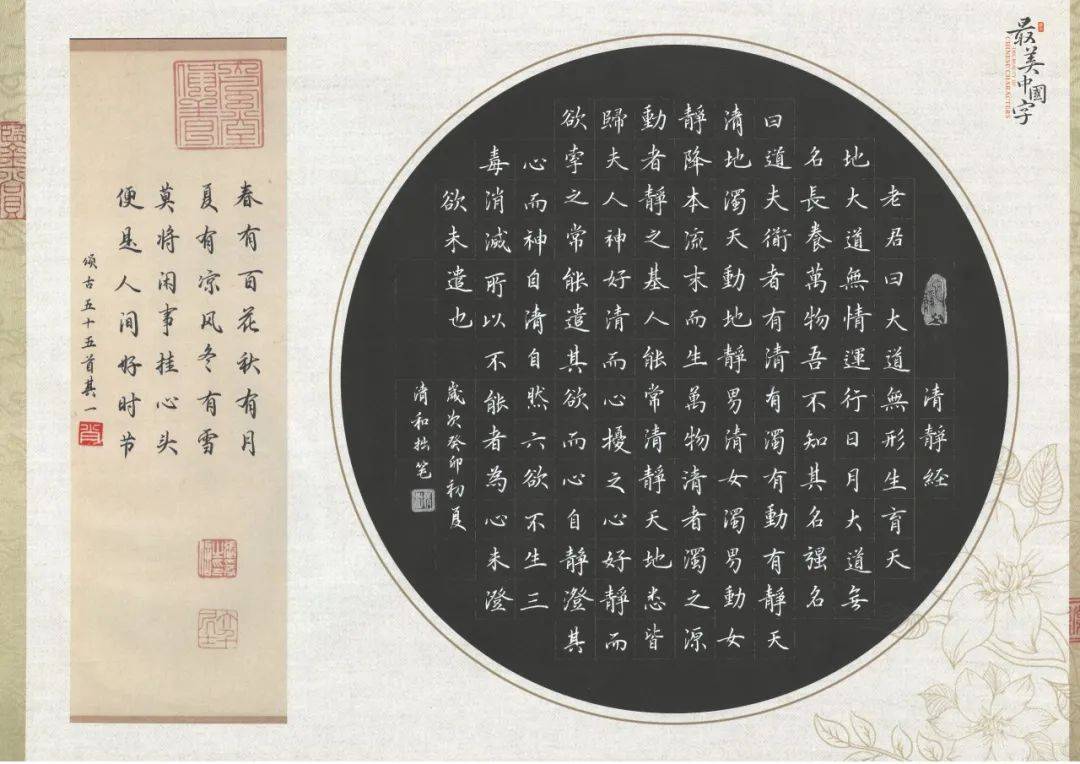 最美中國字
清靜経
老君曰大道無形生育天
地大道無情運行日月大道无
名長養萬物吾不知其名强名
曰道夫衜者有清有濁有動有靜天
清地濁天動地靜男清女濁男動女
靜降本流末而生萬物清者濁之源
動者靜之基人能常清靜天地悉皆
歸夫人神好清而心擾之心好靜而
欲牽之常能遣其欲而心自靜澄其
心而神自清自然六欲不生三
毒消滅所以不能者為心未澄
欲未遣也
歲次癸卯初夏
清和拙笔
春有百花秋有月
夏有凉风冬有雪
莫将闲事挂心头
便是人间好时节
颂古五十五首其一